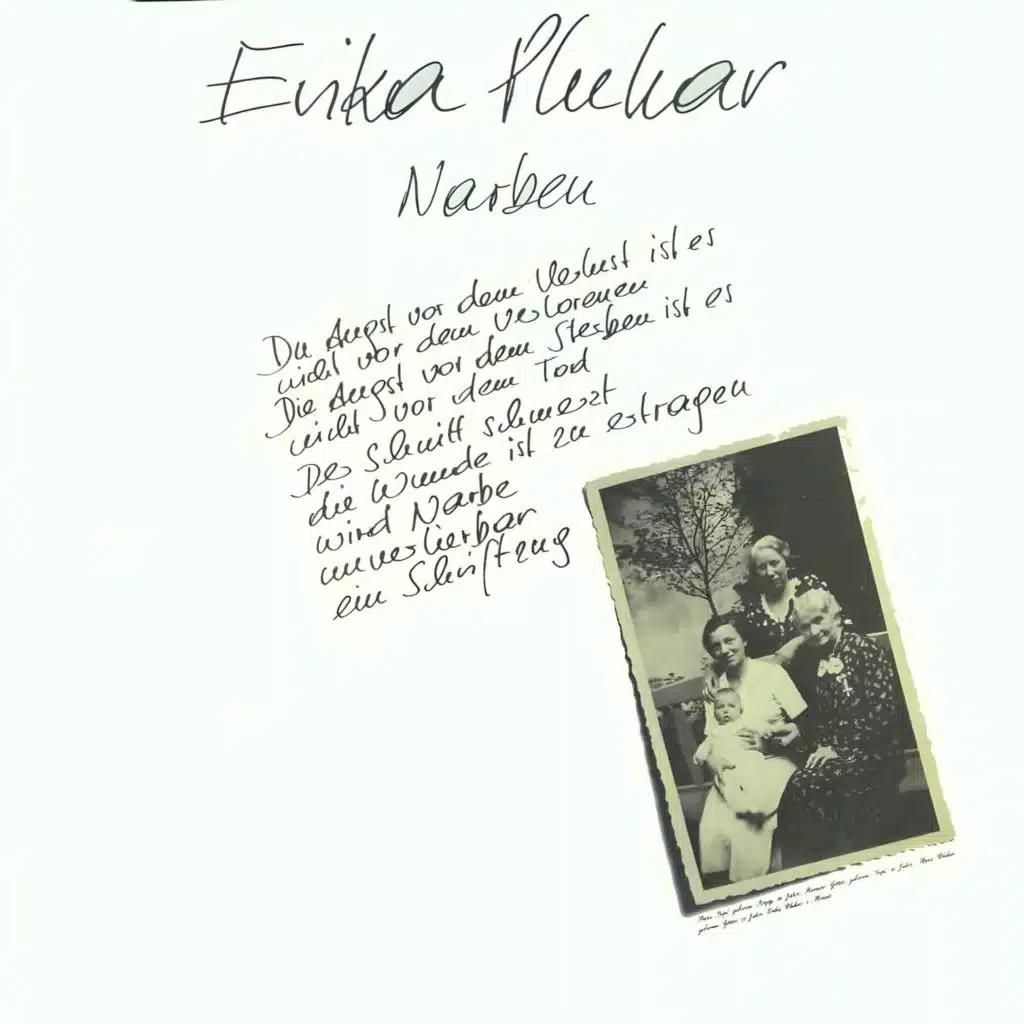 Erika Pluhar
Narben
Die Angst vor dem Verlust ist es
nicht vor dem verlorenen
Die Angst vor dem Sterben ist es
nicht vor dem Tod
Der Schnitt schmerzt
die Wunde ist zu ertragen
wird Narbe
unverlierbar
ein Schriftzug
geborene
geborene